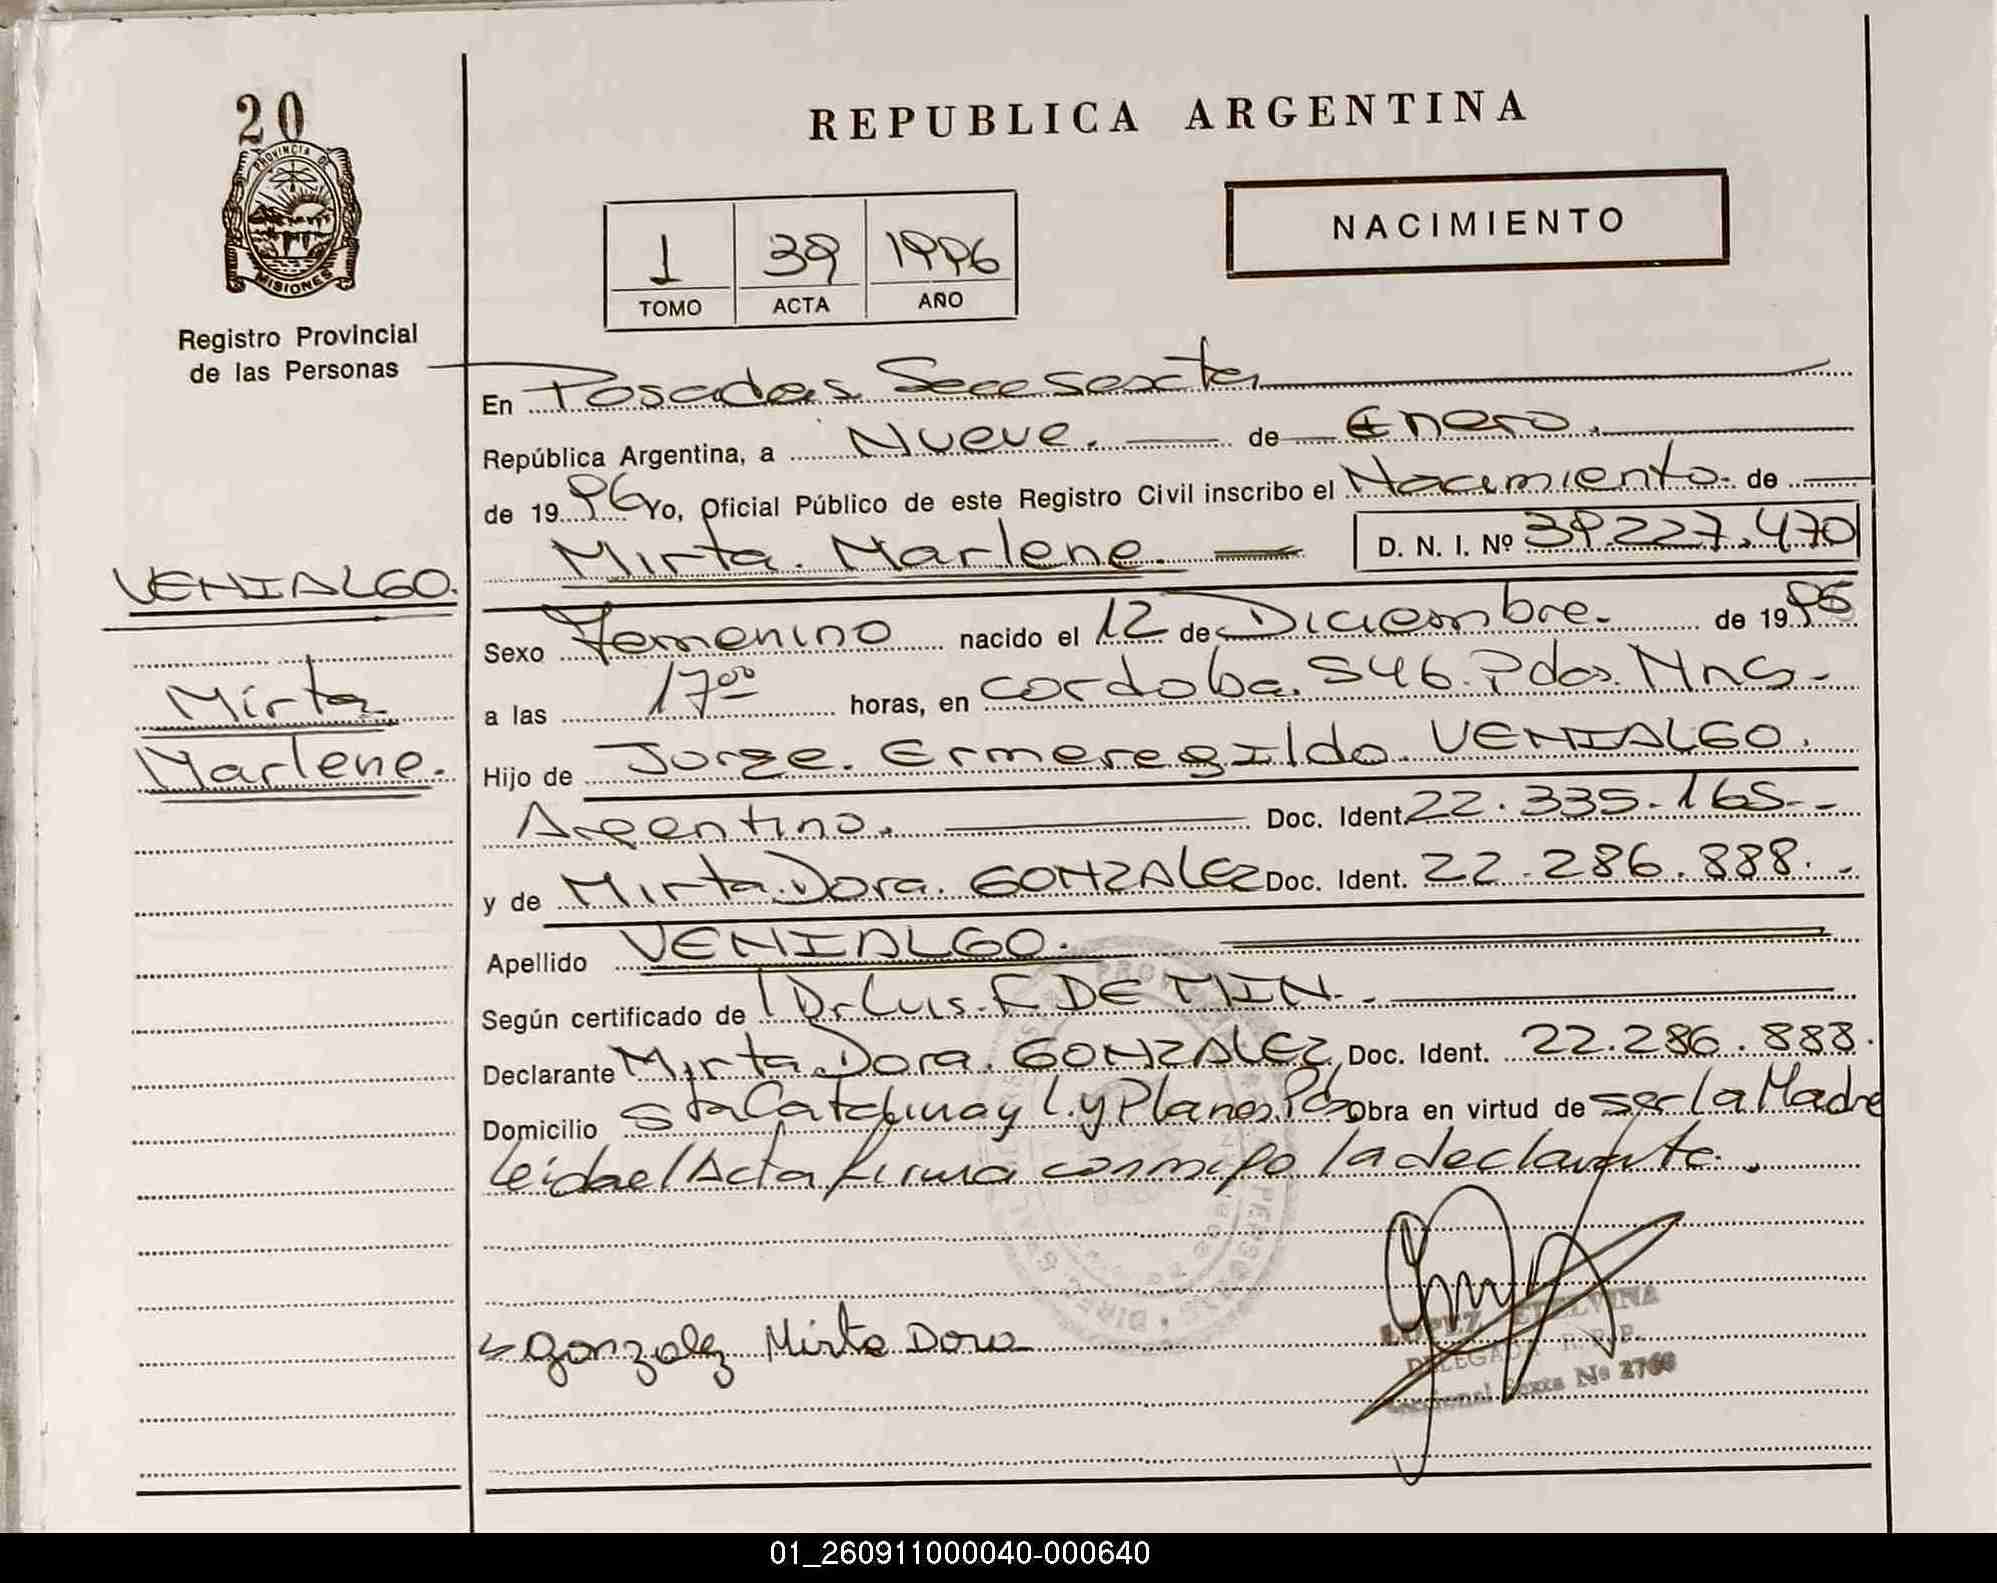 20
PROVINCIA DE
MISIONES
Registro Provincial
de las Personas
REPUBLICA ARGENTINA
NACIMIENTO
1 39 1996
TOMO ACTA AÑO
VENIALGO.
Mirta
Marlene.
En Posadas Secc Sexta
República Argentina, a Nueve. de Enero.
de 1996 Yo, Oficial Público de este Registro Civil inscribo el Nacimiento. de
Mirta. Marlene. D. N. I. Nº 39.227.470
Sexo Femenino nacido el 12 de Diciembre. de 19
a las 17⁰⁰ horas, en cordoba. 546. Pdas. Mns.
Hijo de Jorge. Ermeregildo VENIALGO.
Argentino. Doc. Ident. 22.335.165.-
y de Mirta. Dora. GONZALEZ Doc. Ident. 22.286.888.-
Apellido VENIALGO.
Según certificado de Dr Luis. F. DEMIN.
Declarante Mirta Dora. GONZALEZ, Doc. Ident. 22.286.888.
Domicilio Sta Catalina y L. y Planes. Pdas Obra en virtud de ser la Madre
Leida el Acta firma conmigo la declarante.
Gonzalez Mirta Dora
LOPEZ ETELVINA
DELEGADA R.P.P.
Seccional Sexta Nº 2760
01_260911000040-000640